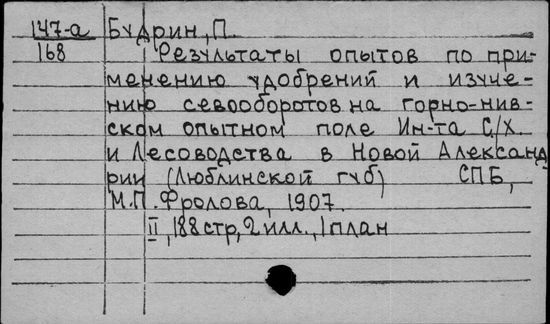 147-а Будрин, П.
168 Результаты опытов по при-
менению удобрений и изуче-
нию севооборотов на горно-нив-
ском опытном поле Ин-та С/Х.
и Лесоводства в Новой Александ
рии (Люблинской губ) СПБ,
М.П. Фролова, 1907.
II, 188 стр, 2 илл., 1 план